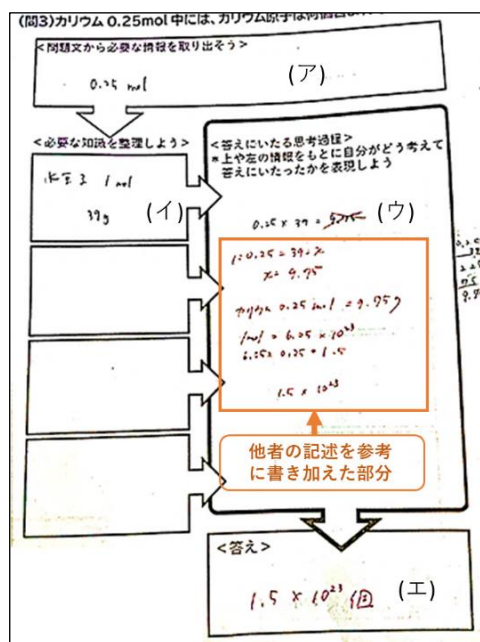 (問3)カリウム 0.25mol 中には、カリウム原子は何個含まれ
<問題文から必要な情報を取り出そう>
0.25 mol
(ア)
<必要な知識を整理しよう>
1 mol
39g
(イ)
<答えにいたる思考過程>
*上や左の情報をもとに自分がどう考えて
答えにいたったかを表現しよう
(ウ)
0.25 × 39 = 9.75
1:0.25 = 39:x
x = 9.75
カリウム 0.25 mol = 9.75g
1mol = 6.25 × 10²³
6.25× 0.25 = 1.5
1.5 × 10²³
他者の記述を参考
に書き加えた部分
<答え>
1.5 × 10²³ 個
(エ)